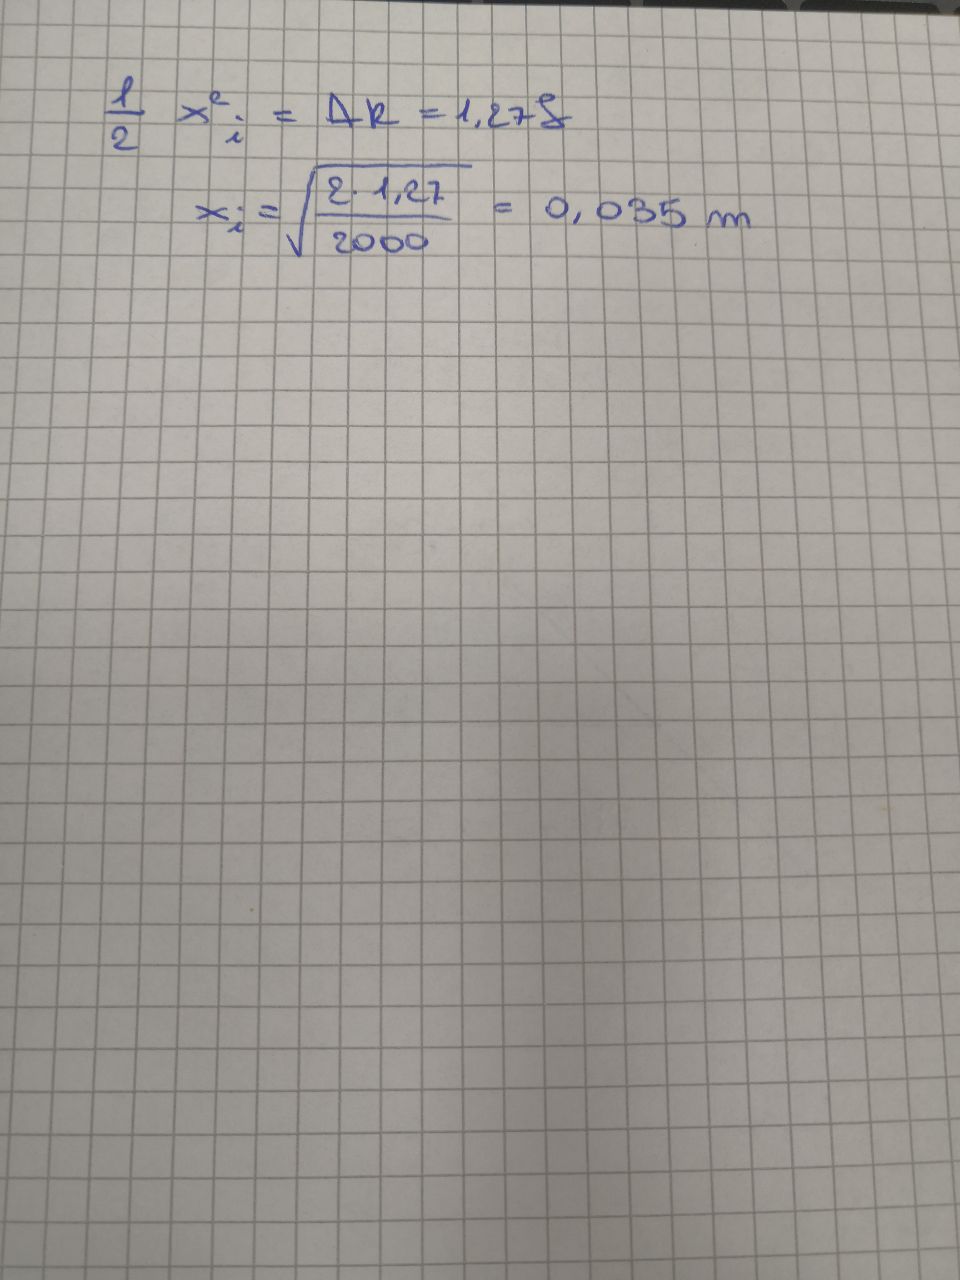 1/2 x²ᵢ = ΔK = 1,27 J
xᵢ = √(2·1,27/2000) = 0,035 m